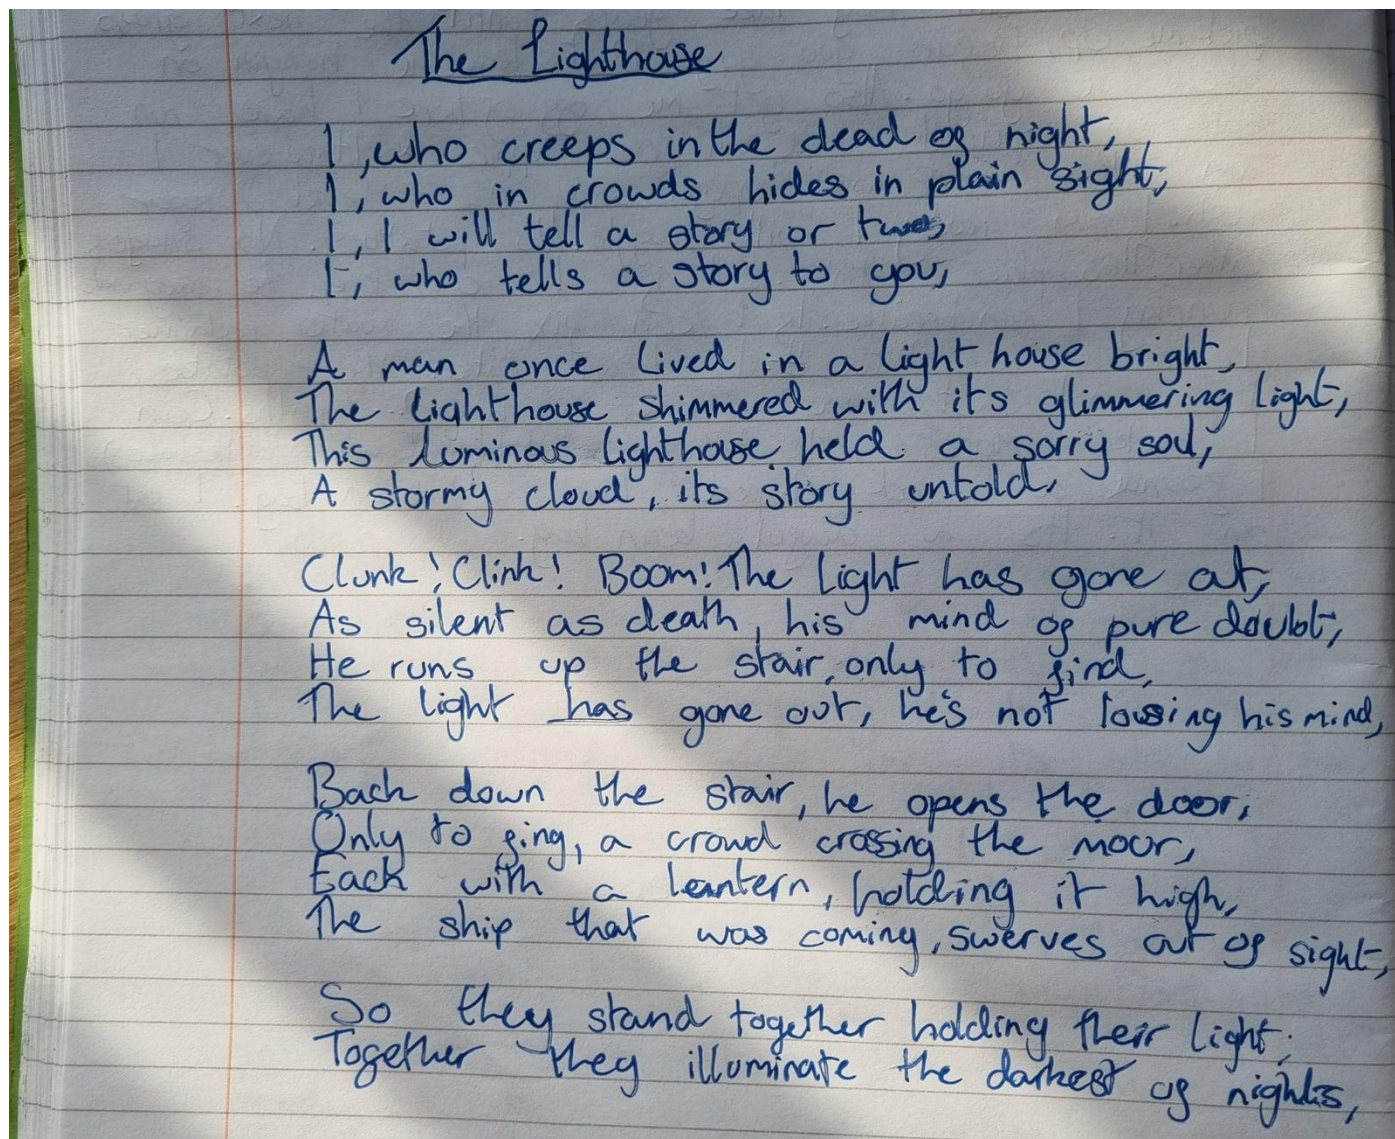 The Lighthouse
I, who creeps in the dead of night,
I, who in crowds hides in plain sight,
I, I will tell a story or two,
I, who tells a story to you,
A man once lived in a light house bright,
The lighthouse shimmered with its glimmering light,
This luminous lighthouse held a sorry soul,
A stormy cloud, its story untold,
Clunk! Clink! Boom! The light has gone out,
As silent as death, his mind of pure doubt,
He runs up the stair, only to find,
The light has gone out, he's not lousing his mind,
Back down the stair, he opens the door,
Only to fing, a crowd crossing the moor,
Each with a leantern, holding it high,
The ship that was coming, swerves out of sight,
So they stand together holding their light,
Together they illuminate the darkest of nights,